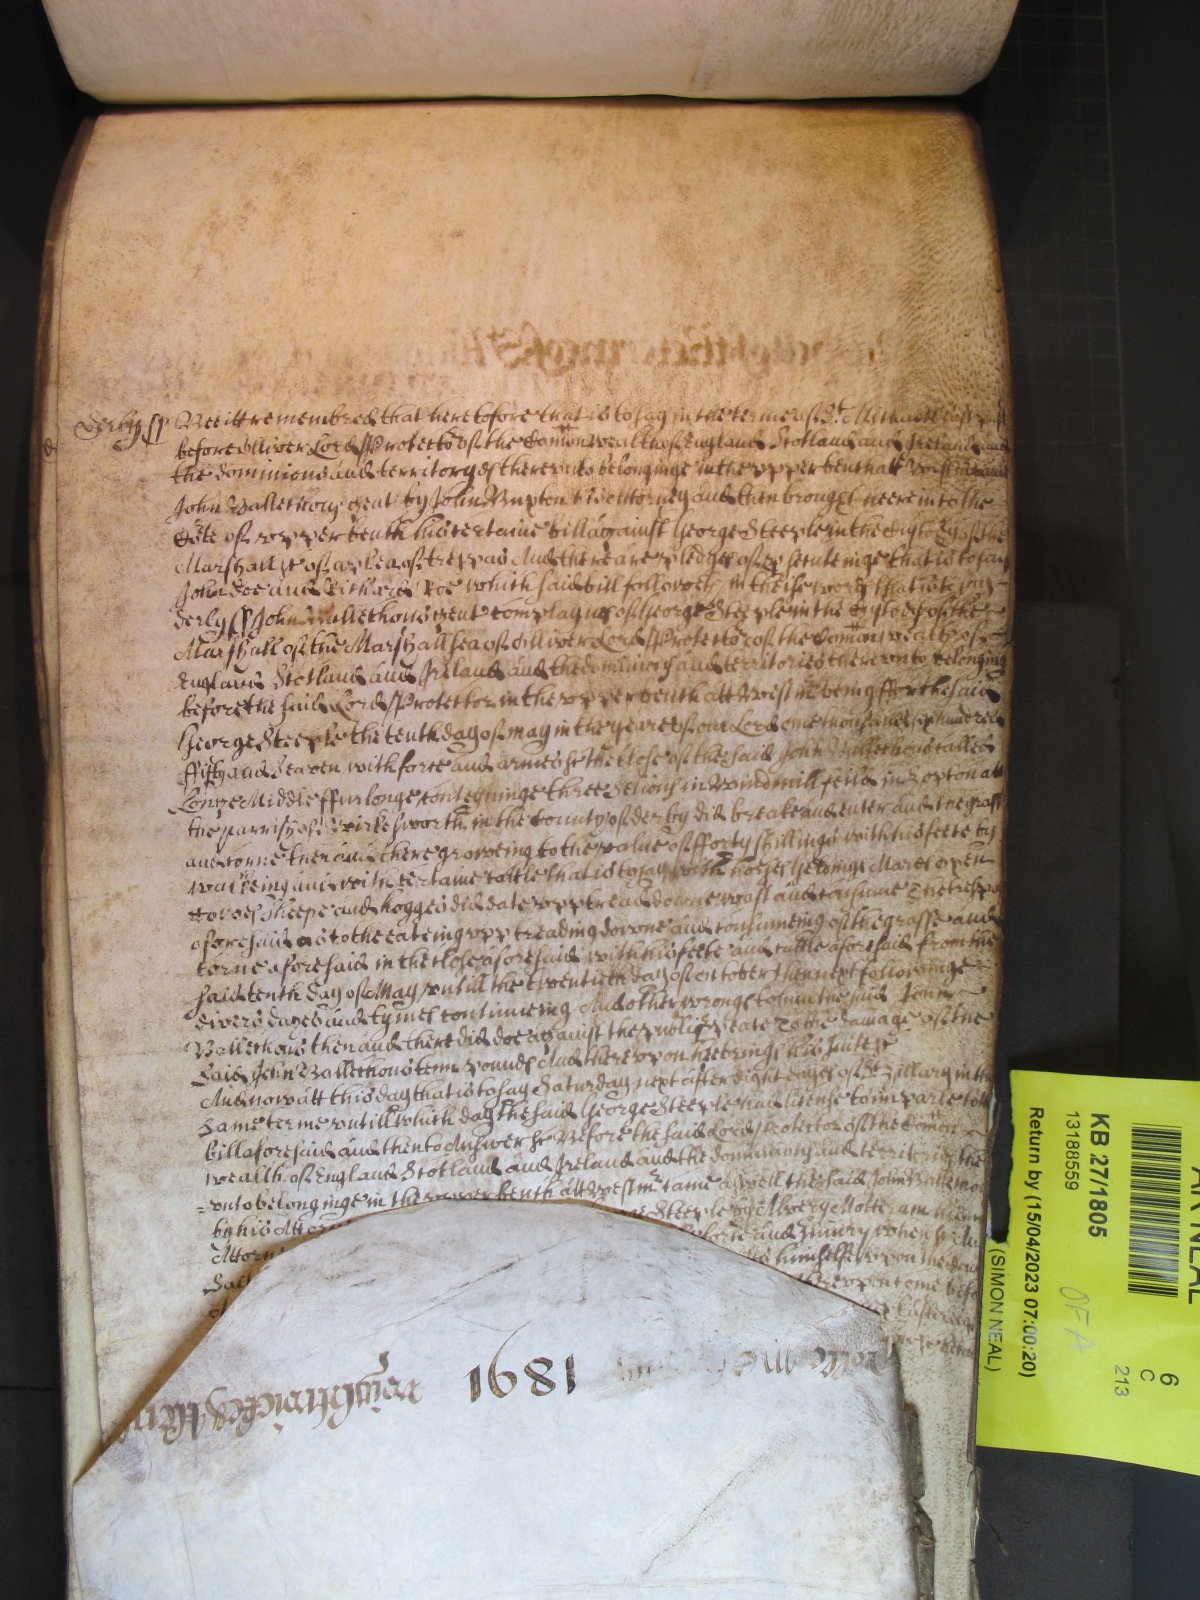 derby ss Bee itt remembred that heretofore that is to say in the terme of St. Michaell last past
before Oliver Lord Protector of the Comonwealth of England Scotland and Ireland and
the dominions and territoryes thereunto belonginge in the upper bench att Westm came
John Ballethons gent by John Buxton his Attorney and then brought heere into the
Co'te of upper bench his certaine bill against George Steeple in the Custody of the
Marshall &c of a plea of trespas And there are pledges of prosecuteinge that is to say
John doe and Richard Roe which said bill followeth in theise words that is to say
derby ss John Ballethons gent complaynes of George Steeple in the Custody of the
Marshall of the Marshallsea of Oliver Lord Protector of the Comonwealth of
England Scotland and Ireland and the dominions and territories thereunto belonging
before the said Lord Protector in the upper bench att Westmr being ffor that he said
George Steeple the tenth day of May in the yeare of our Lord one thousand six hundred
ffifty and Seaven with force and armes &c the close of the said John Ballethons called
Longe Middle ffurlonge conteyninge three Selions in Windmill feild in Hopton att
the parrish of Wirkesworth in the County of derby did breake and enter and the grass
and corne then and there groweing to the value of fforty shillings with his feete by
walkeing and with certaine cattle that is to say with horses geldings Mares oxen
cowes sheepe and hogges did eate upp tread downe wast and consume The trespas
aforesaid as to the eateing upp treading downe and consumeing of the grasse and
corne aforesaid in the close aforesaid with his feete and cattle aforesaid from the
said tenth day of May untill the twentieth day of October then next followinge
divers dayes and tymes continueing And other wronges to him the said John
Ballethons then and there did doe against the publique peace To the damage of the
said John Ballethons tenn pounds And thereupon hee brings his suite &c
And now att this day that is to say Saturday next after eight dayes of St. Hillary in this
same terme untill which day the said George Steeple had license to imparle to the
bill aforesaid and then to Answer &c Before the said Lord Protector of the Comon
wealth of England Scotland and Ireland and the dominions and territories there
unto belonginge in the upper bench att Westmr came aswell the said John Ballethons
by his Attor Steeple by Alverey Motteram his
Attorn force and Injury when &c
Said himselfe upon the
thereupon come before
Easter
1681
KB 27/1805
13188559
Return by (15/04/2023 07:00:20)
(SIMON NEAL)
AR NEAL
6
C
213